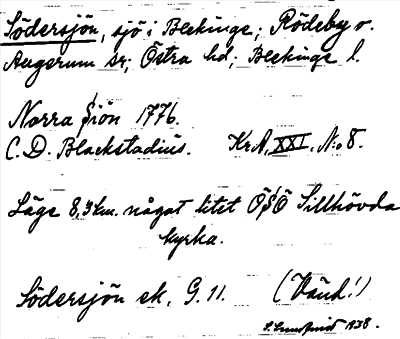 Södersjön, sjö i Blekinge; Rödeby o.
Augerum sr; Östra hd; Blekinge l.
Norra Siön 1776.
C. D. Blackstadius. KrA, XXI, N:o 8.
Läge 8,3 km. något litet ÖSÖ Sillhövda
kyrka.
Södersjön ek. G. 11. (Vänd!)
S. Lundqvist 1938.